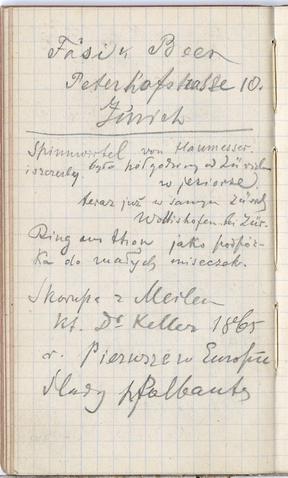 Fäsi & Beer
Peterhofstrasse 10.
Zürich
Spinnwirtel von Haumesser.
i szczęki. było pół godziny od Zürich
w jeziorze
teraz już w samym Zürich
Wollishofen bei Zür.
Ring aus thon jako podpór-
ka do małych miseczek.
Skorupa z Meilen
Dr Keller 1865
r. Pierwsze w Europie
ślady Pfalbauten